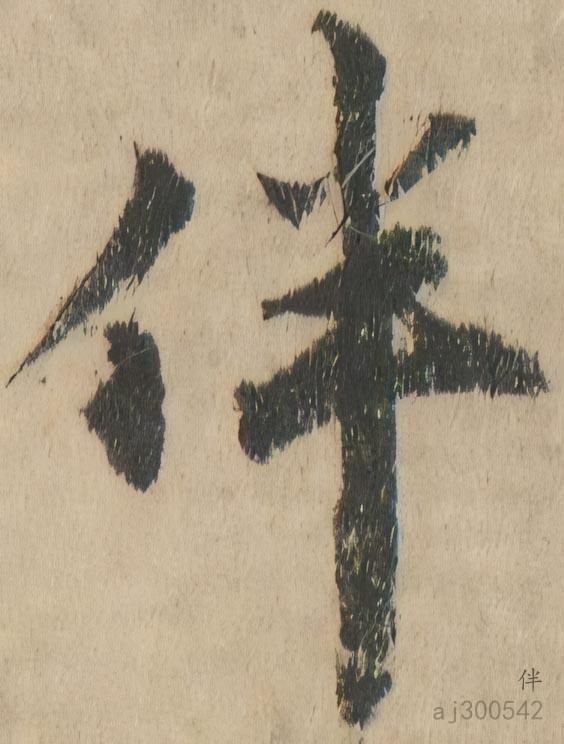 伴
伴
aj300542